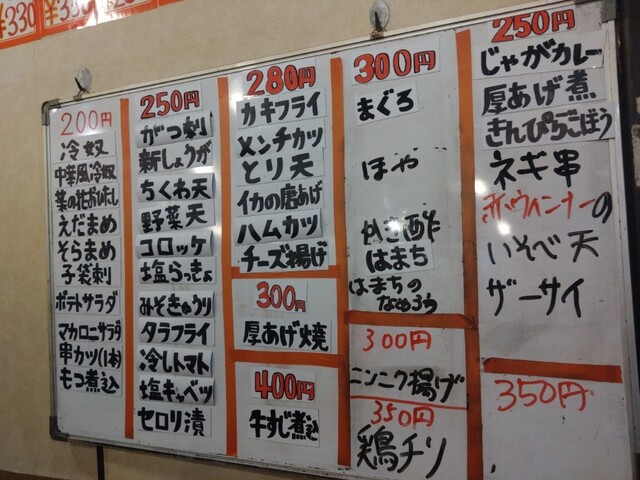 ¥330
¥350
200円
冷奴
中華風冷奴
菜の花おひたし
えだまめ
そらまめ
子袋刺
ポテトサラダ
マカロニサラダ
串カツ(1本)
もつ煮込
250円
がつ刺
新しょうが
ちくわ天
野菜天
コロッケ
塩らっきょ
みそきゅうり
タラフライ
冷しトマト
塩キャベツ
セロリ漬
280円
カキフライ
メンチカツ
とり天
イカの唐あげ
ハムカツ
チーズ揚げ
300円
厚あげ焼
400円
牛すじ煮込
300円
まぐろ
ほや
かき酢
はまち
はまちの
なめろう
300円
ニンニク揚げ
350円
鶏チリ
250円
じゃがカレー
厚あげ煮
きんぴらごぼう
ネギ串
赤ウインナーの
いそべ天
ザーサイ
350円